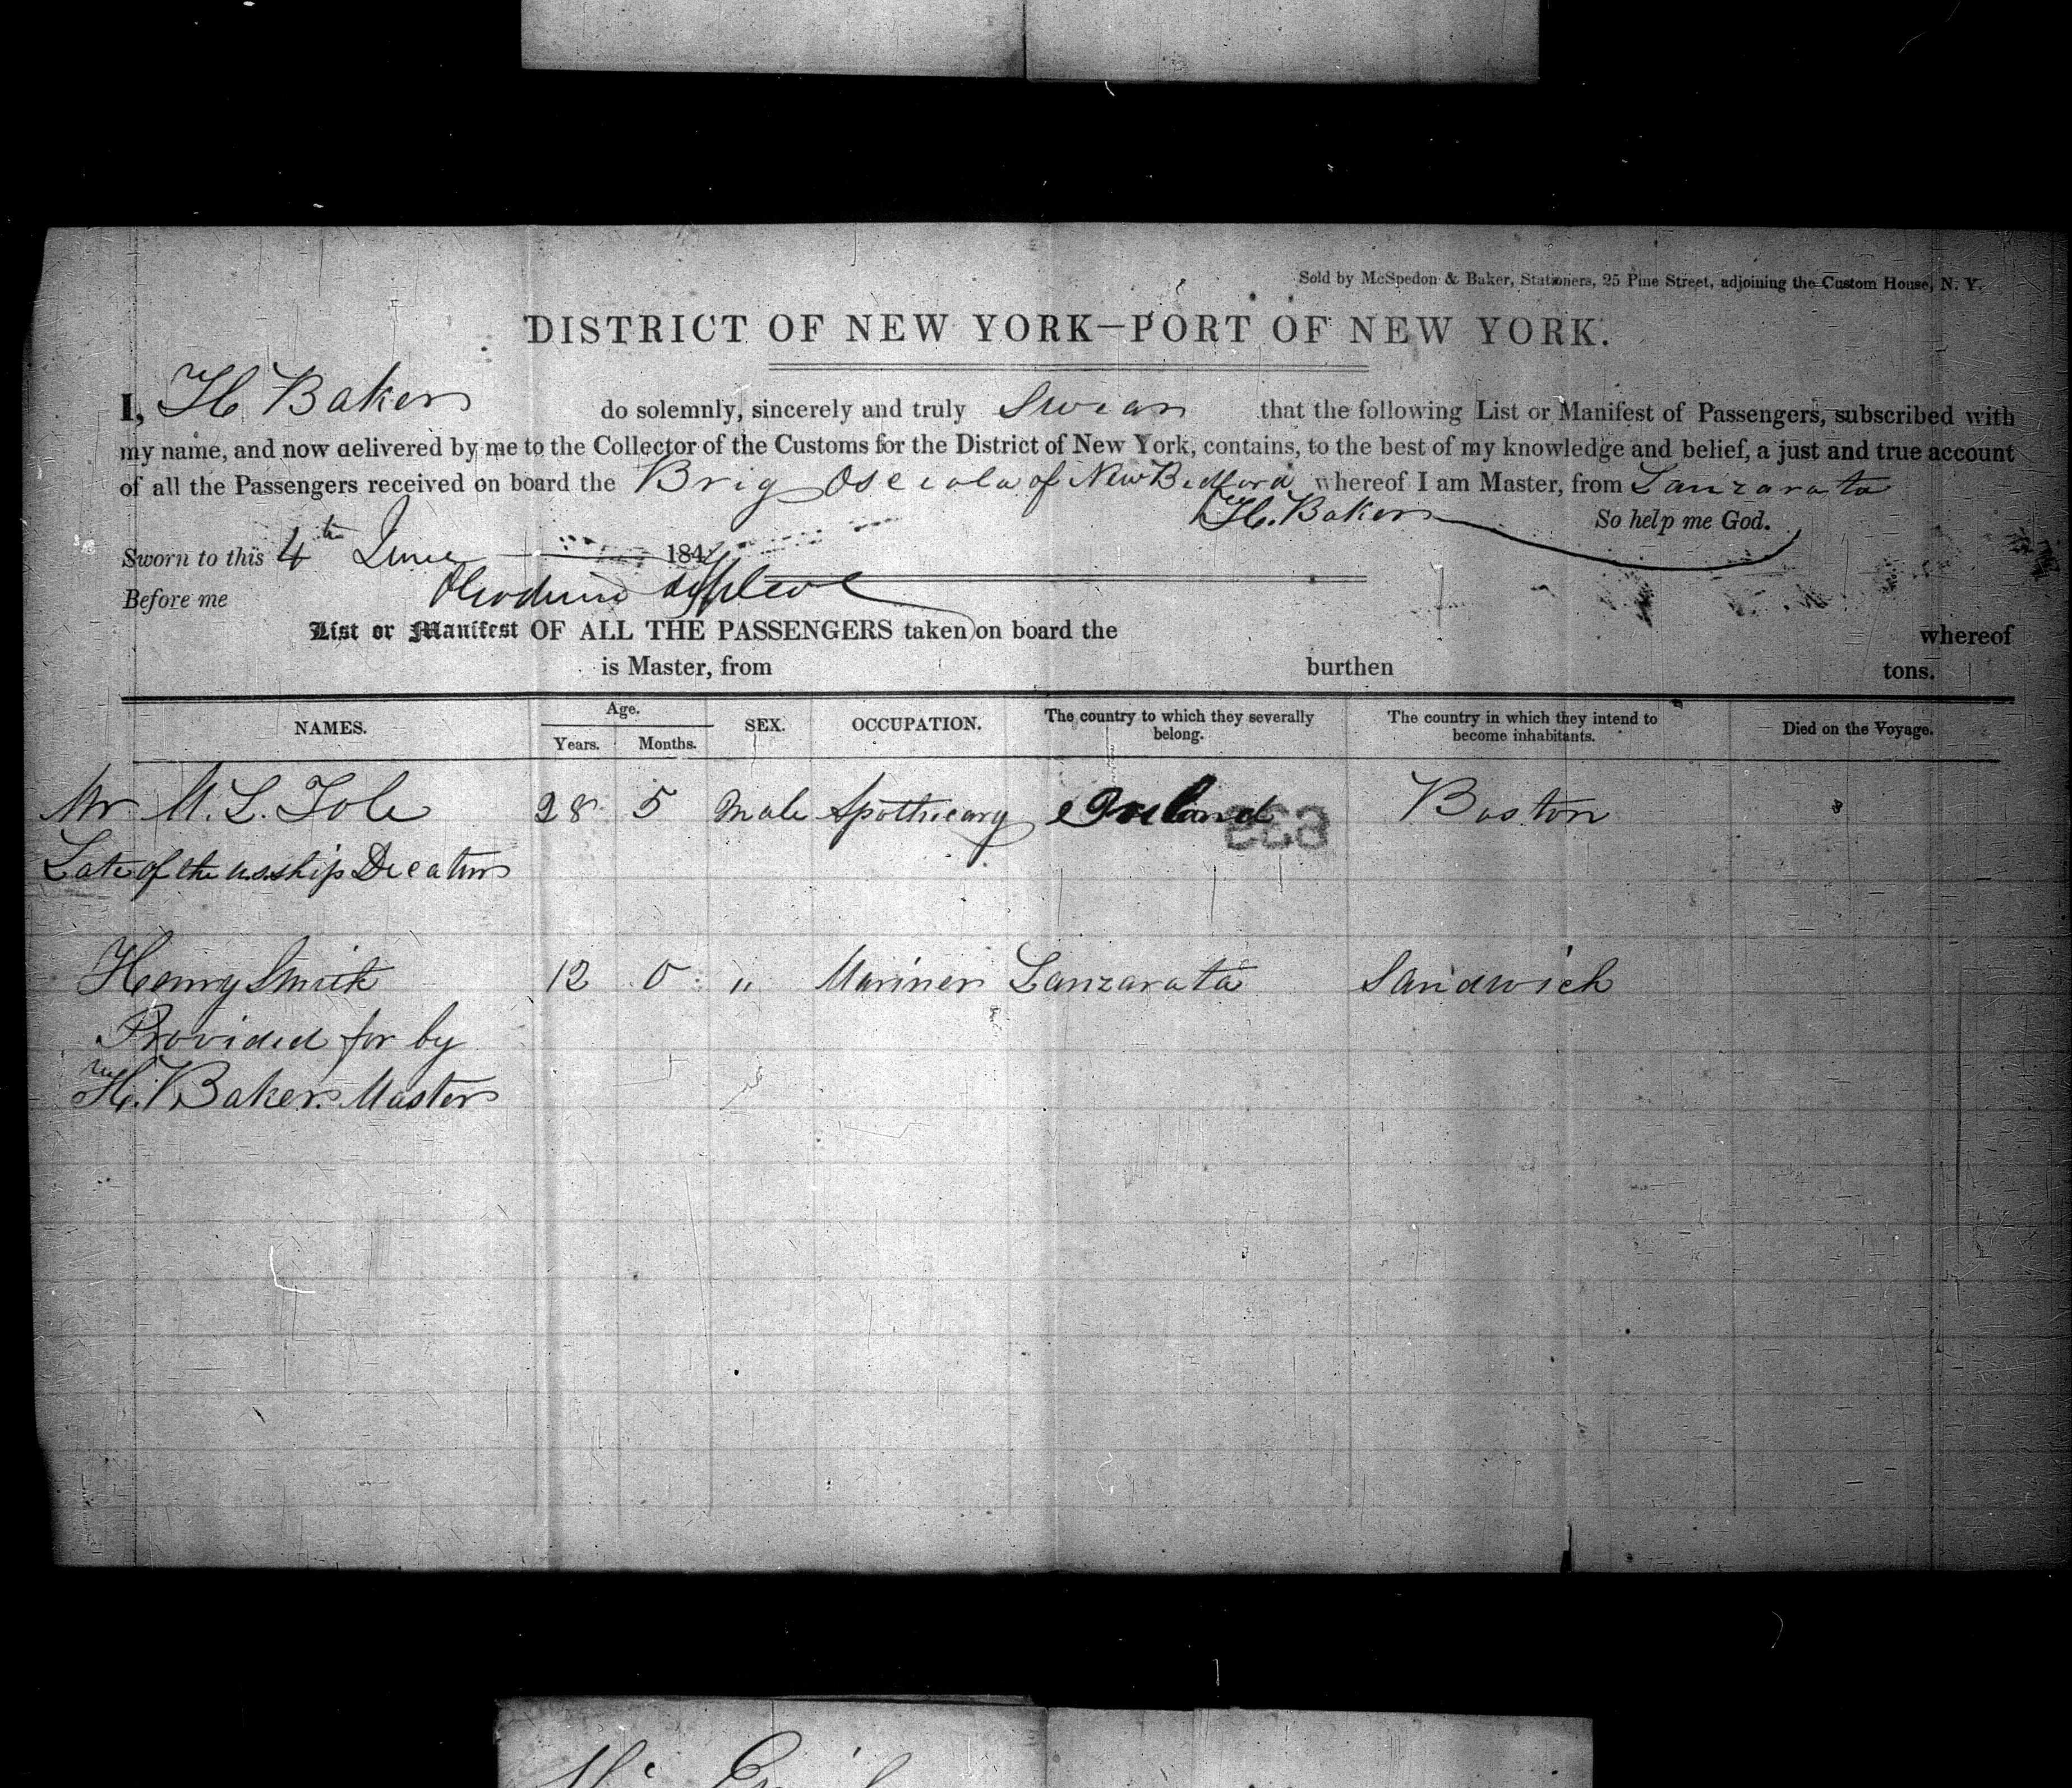 Sold by McSpedon & Baker, Stationers, 25 Pine Street, adjoining the Custom House, N. Y.
DISTRICT OF NEW YORK—PORT OF NEW YORK.
I, H Baker do solemnly, sincerely and truly Swear that the following List or Manifest of Passengers, subscribed with
my name, and now delivered by me to the Collector of the Customs for the District of New York, contains, to the best of my knowledge and belief, a just and true account
of all the Passengers received on board the Brig Osceola of New Bedford whereof I am Master, from Lanzarata
H. Baker So help me God.
Sworn to this 4th June 184
Before me
List or Manifest OF ALL THE PASSENGERS taken on board the whereof
is Master, from burthen tons.
NAMES. Age. Years. Months. SEX. OCCUPATION. The country to which they severally belong. The country in which they intend to become inhabitants. Died on the Voyage.
Mr M. L. Tole 28 5 Male Apothecary Ireland Boston
Late of the U.S. Ship Decatur
Henry Smith 12 0 " Mariner Lanzarata Sandwich
Provided for by
H. Baker Master